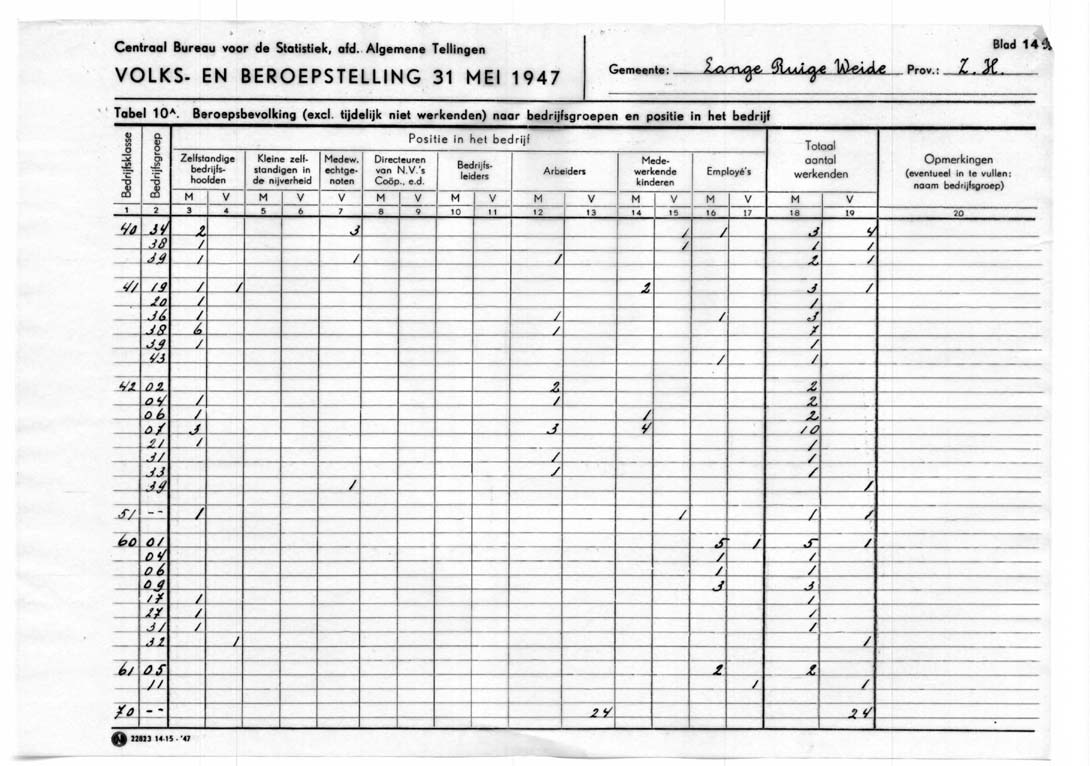 Centraal Bureau voor de Statistiek, afd. Algemene Tellingen
Blad 14
VOLKS- EN BEROEPSTELLING 31 MEI 1947
Gemeente: Lange Ruige Weide Prov.: Z. H.
Tabel 10A. Beroepsbevolking (excl. tijdelijk niet werkenden) naar bedrijfsgroepen en positie in het bedrijf
Bedrijfsklasse Bedrijfsgroep Positie in het bedrijf Totaal aantal werkenden Opmerkingen (eventueel in te vullen: naam bedrijfsgroep)
Zelfstandige bedrijfs-hoofden Kleine zelf-standigen in de nijverheid Medew. echtge-noten Directeuren van N.V.'s Coöp., e.d. Bedrijfs-leiders Arbeiders Mede-werkende kinderen Employé's
M V M V V M V M V M V M V M V M V
1 2 3 4 5 6 7 8 9 10 11 12 13 14 15 16 17 18 19 20
40 34 2 3 1 1 3 4
38 1 1 1 1
39 1 1 1 2 1
41 19 1 1 2 3 1
20 1 1
36 1 1 1 3
38 6 1 7
39 1 1
43 1 1
42 02 2 2
04 1 1 2
06 1 1 2
07 3 3 4 10
21 1 1
31 1 1
33 1 1
39 1 1
51 -- 1 1 1 1
60 01 5 1 5 1
04 1 1
06 1 1
09 3 3
17 1 1
27 1 1
31 1 1
32 1 1
61 05 2 2
11 1 1
70 -- 24 24
22823 14-15-'47